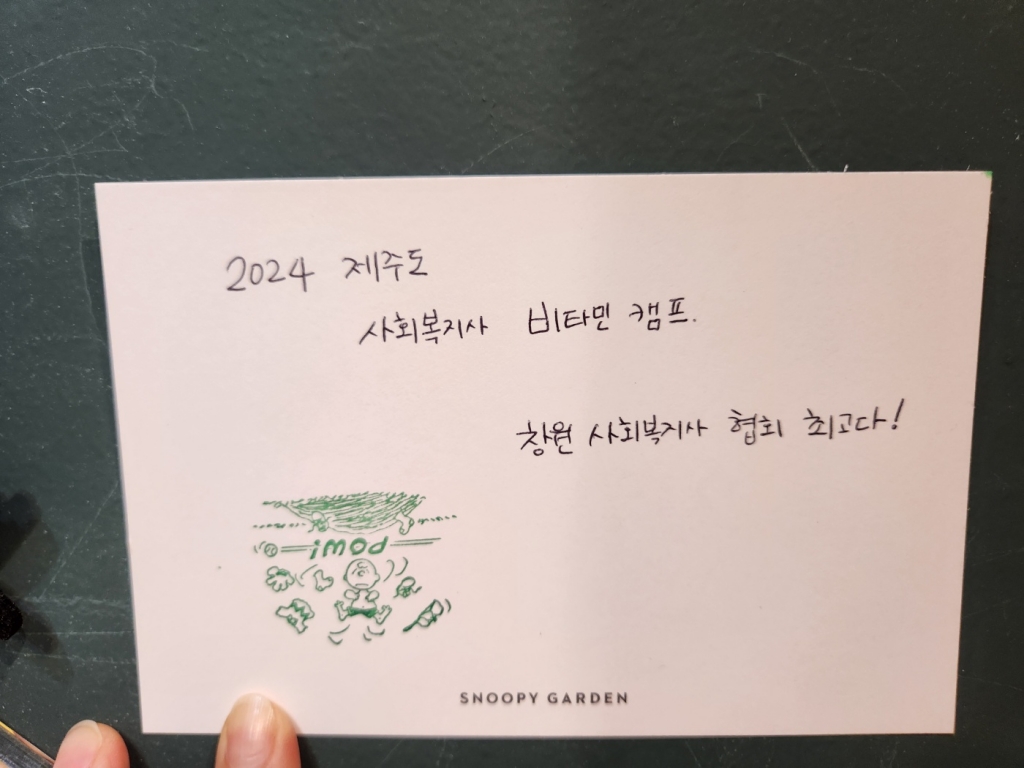 2024 제주도
사회복지사 비타민 캠프.
창원 사회복지사 협회 최고다!
SNOOPY GARDEN